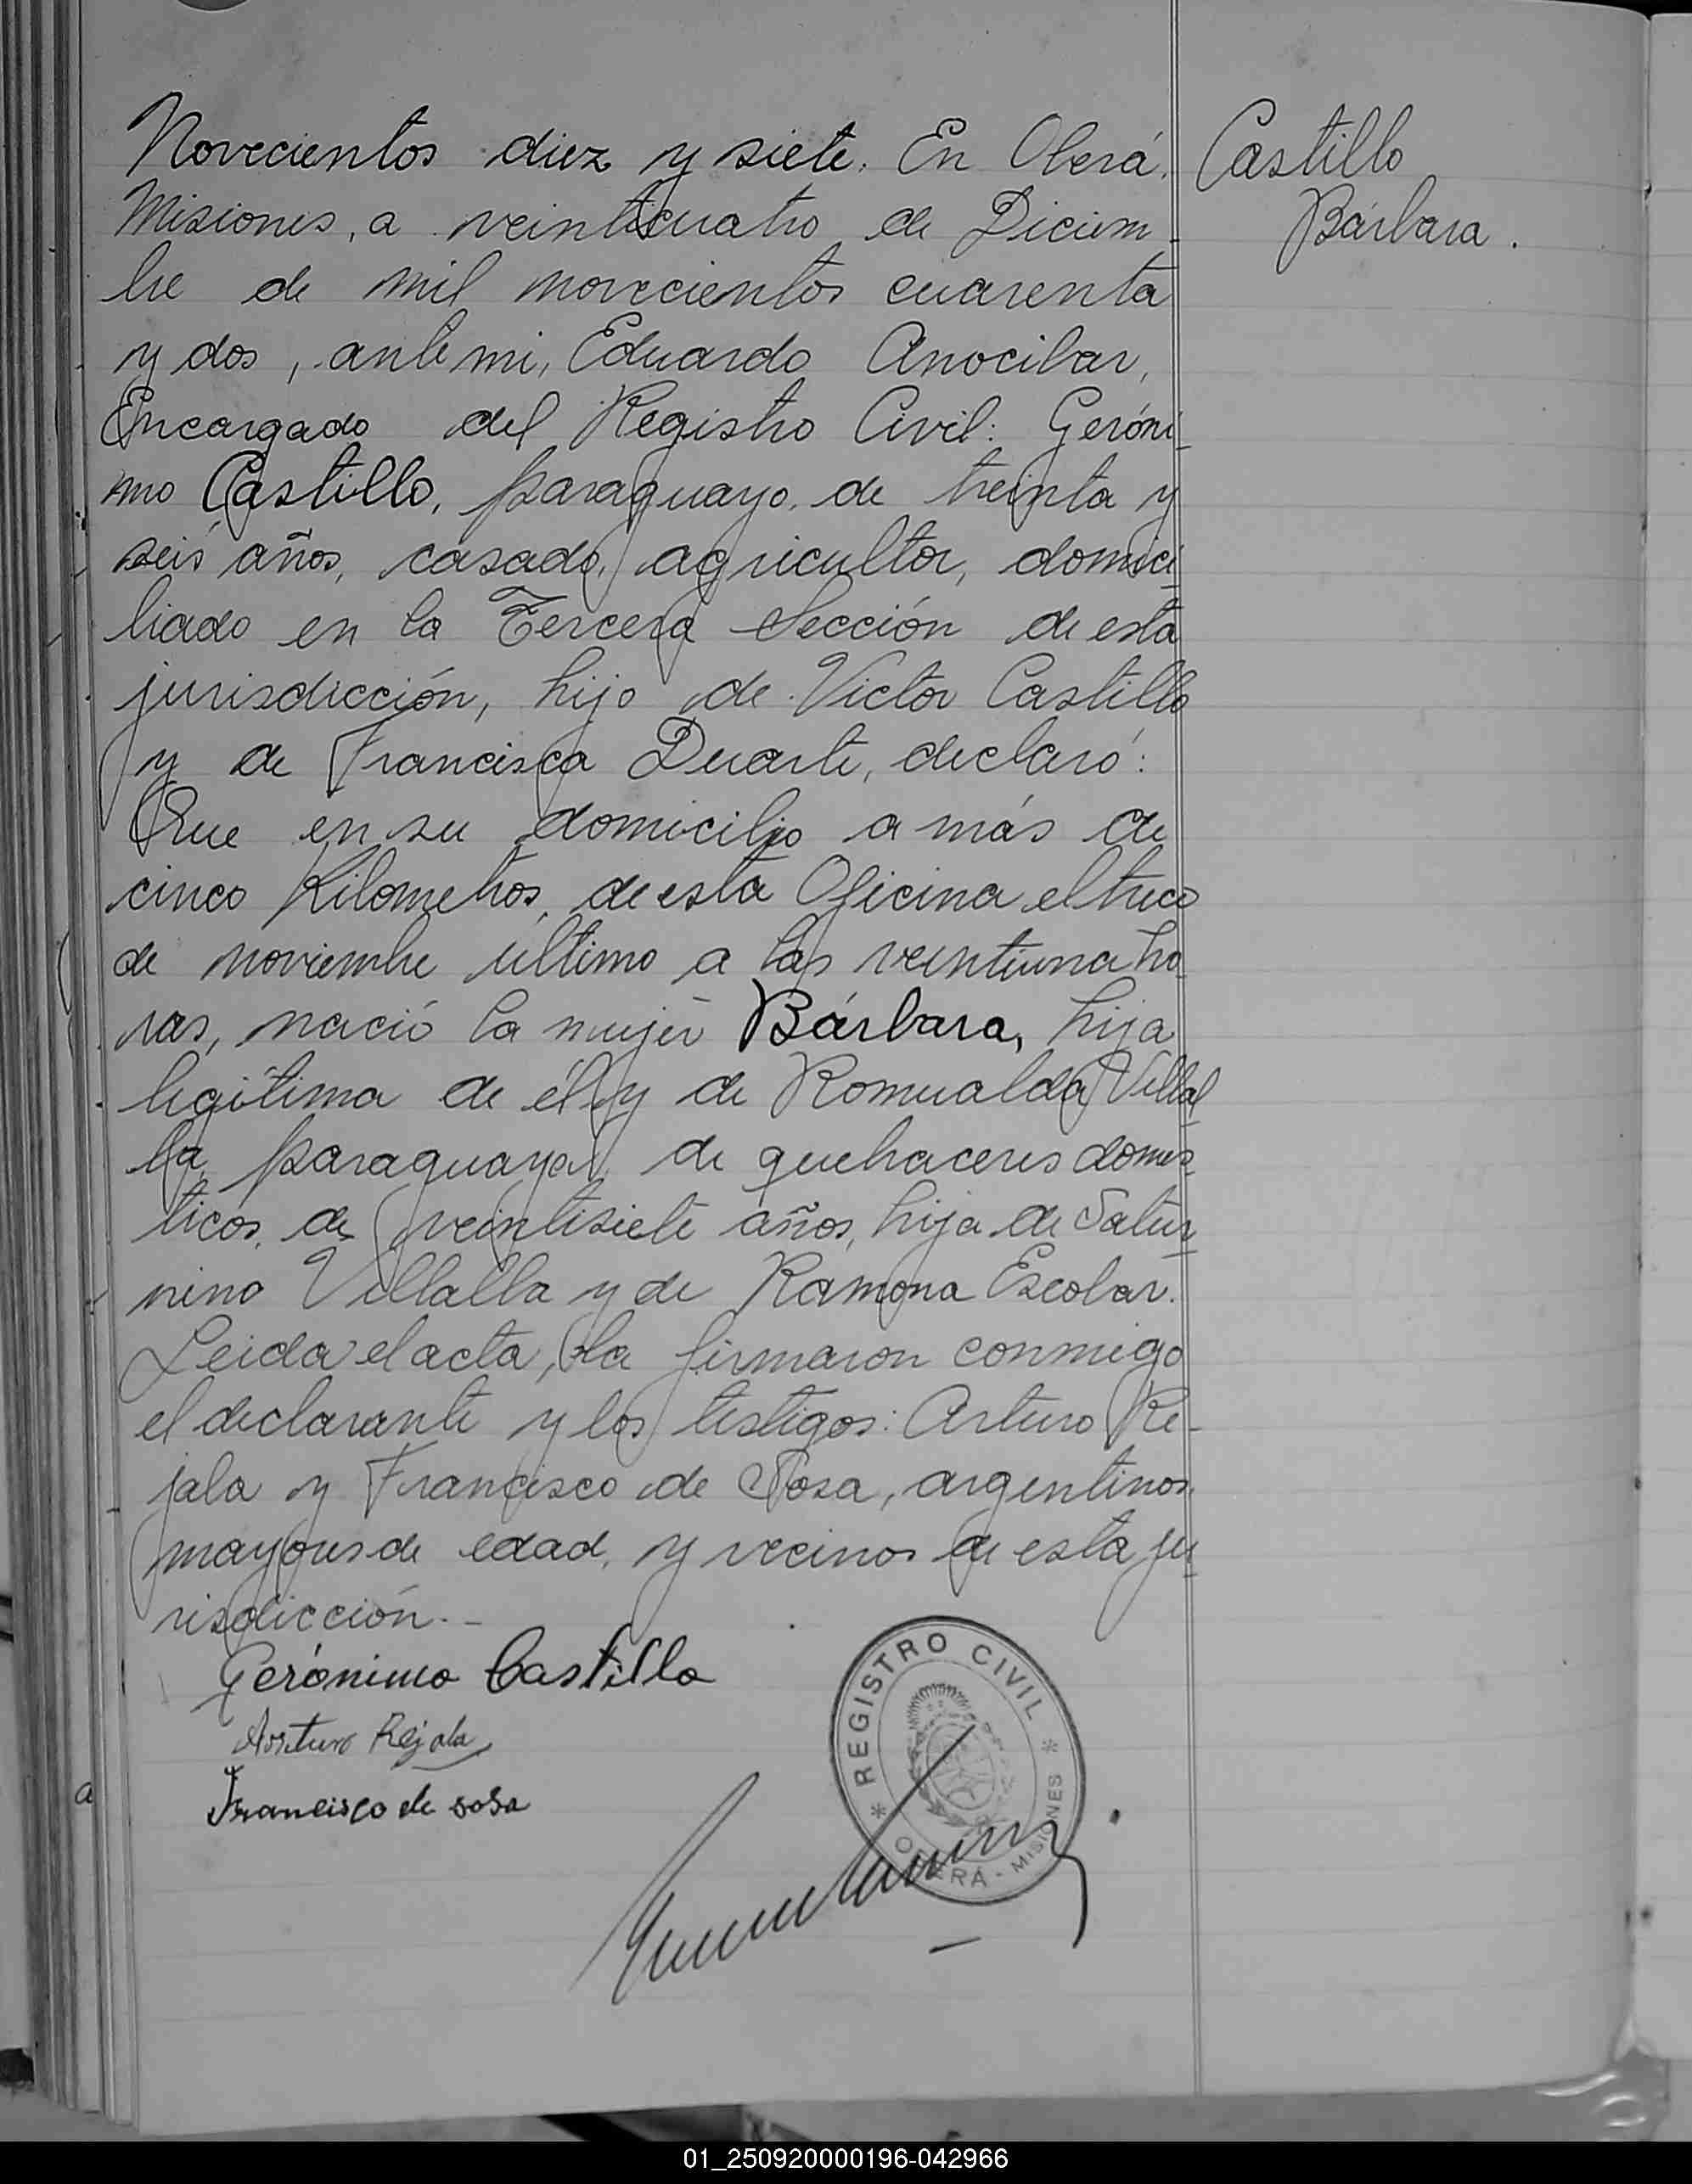 Novecientos diez y siete. En Oberá,
Misiones, a veinticuatro de Diciem-
bre de mil novecientos cuarenta
y dos, ante mi, Eduardo Anocibar,
Encargado del Registro Civil: Geróni-
mo Castillo, paraguayo, de treinta y
seis años, casado, agricultor, domici-
liado en la Tercera Sección de esta
jurisdicción, hijo de Victor Castillo
y de Francisca Duarte, declaró:
Que en su domicilio a más de
cinco Kilometros, de esta Oficina el trece
de noviembre último a las veintiuna ho-
ras, nació la mujer Bárbara, hija
legítima de él y de Romualda Villal-
ba paraguaya, de quehaceres domés-
ticos, de veintisiete años, hija de Satur-
nino Villalba y de Ramona Escobar.
Leida el acta, la firmaron conmigo
el declarante y los testigos: Arturo Re-
jala y Francisco de Sosa, argentinos,
mayores de edad, y vecinos de esta ju-
risdicción.-
Gerónimo Castillo
Arturo Rejala
Francisco de sosa
Castillo
Bárbara.
REGISTRO CIVIL
OBERÁ - MISIONES
a
01_250920000196-042966